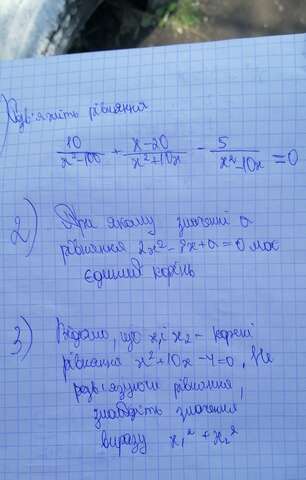 Розв'яжіть рівняння
10/(x²-100) + (x-20)/(x²+10x) - 5/(x²-10x) = 0
2) При якому значенні а
рівняння 2x²-8x+a=0 має
єдиний корінь
3) Відомо, що x₁ і x₂ - корені
рівняння x²+10x-4=0. Не
розв'язуючи рівняння,
знайдіть значення
виразу x₁²+x₂²